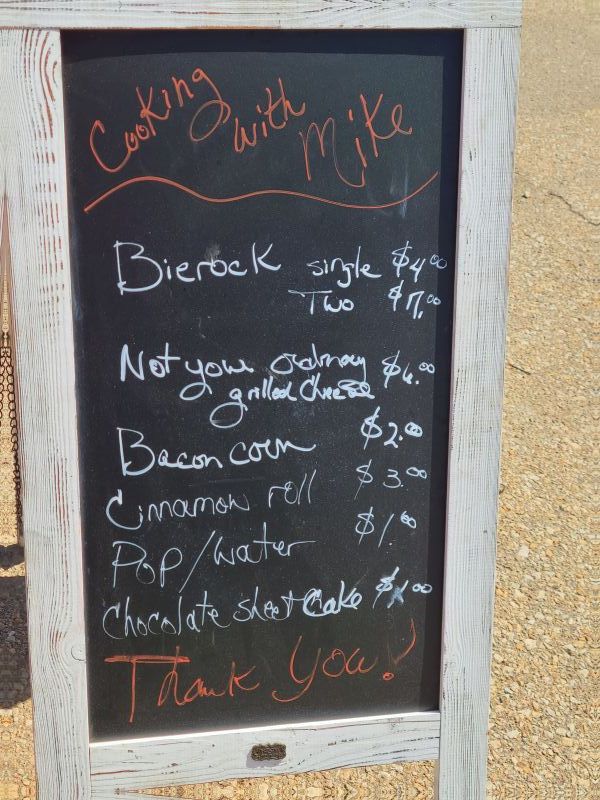 Cooking with Mike
Bierock single $4.00
Two $7.00
Not your ordinary $6.00
grilled cheese
Bacon corn $2.00
Cinnamon roll $3.00
Pop/water $1.00
Chocolate sheet cake
Thank You!